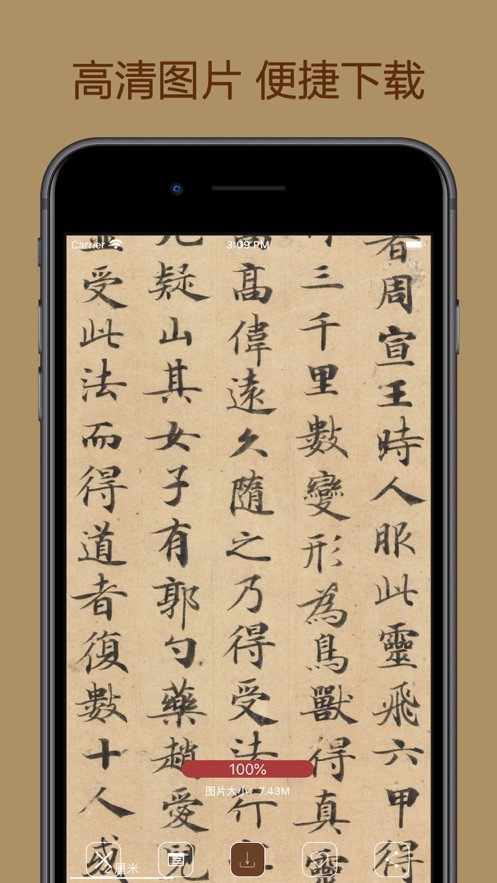 高清图片 便捷下载
Carrier 3:09 PM
者周宣王時人服此靈飛六甲得
行三千里數變形為鳥獸得真靈
嵩髙偉遠久隨之乃得受法行
九疑山其女子有郭勺藥趙愛兒
受此法而得道者復數十人或
100%
图片大小：7.43M
2 厘米